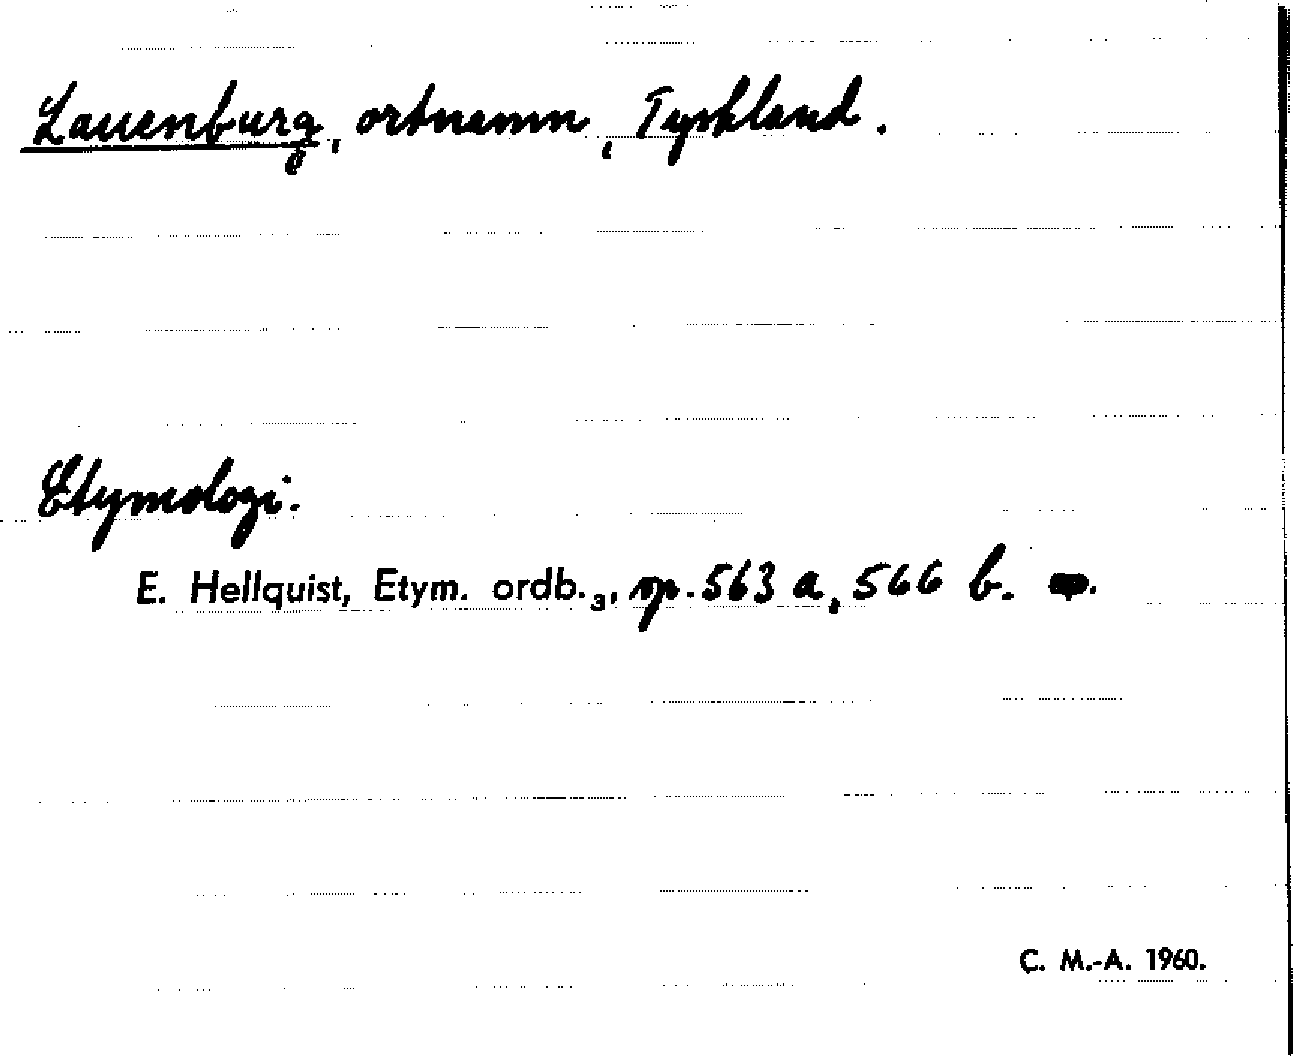 Lauenburg, ortnamn, Tyskland.
Etymologi.
E. Hellquist, Etym. ordb.₃, sp. 563 a, 566 b.
C. M.-A. 1960.